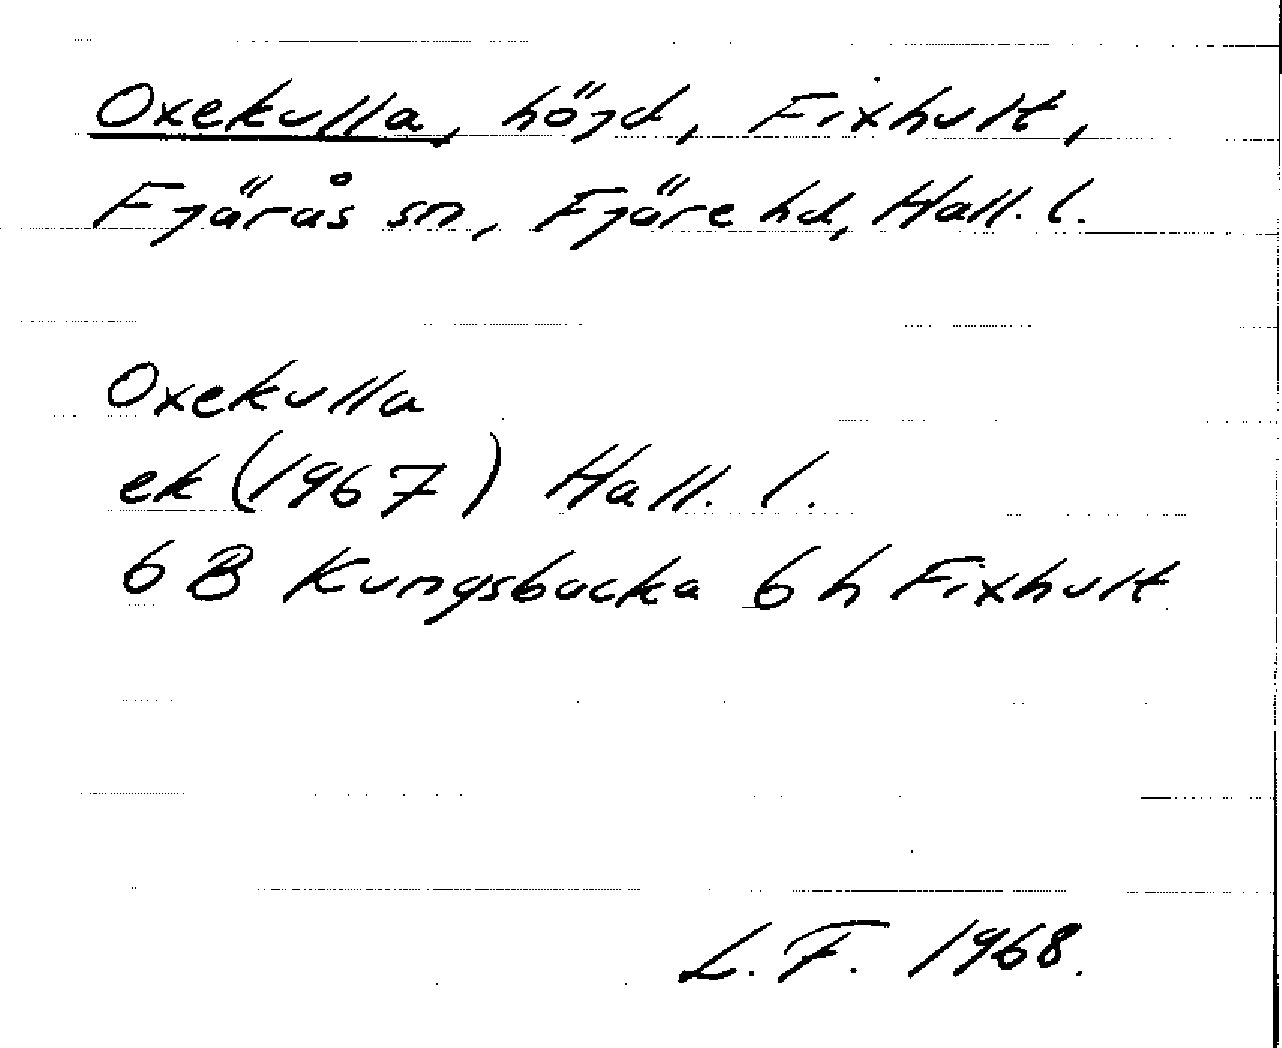 Oxekulla, höjd, Fixhult,
Fjärås sn, Fjäre hd, Hall. l.
Oxekulla
ek (1967) Hall. l.
6 B Kungsbacka 6 h Fixhult
L. F. 1968.